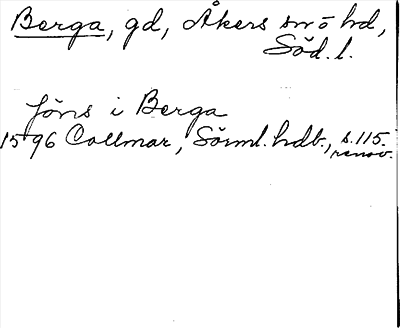 Berga, gd, Åkers sn ö hd,
Söd. l.
Jöns i Berga
1596 Collmar, Sörml. hdb., s. 115.
renov.